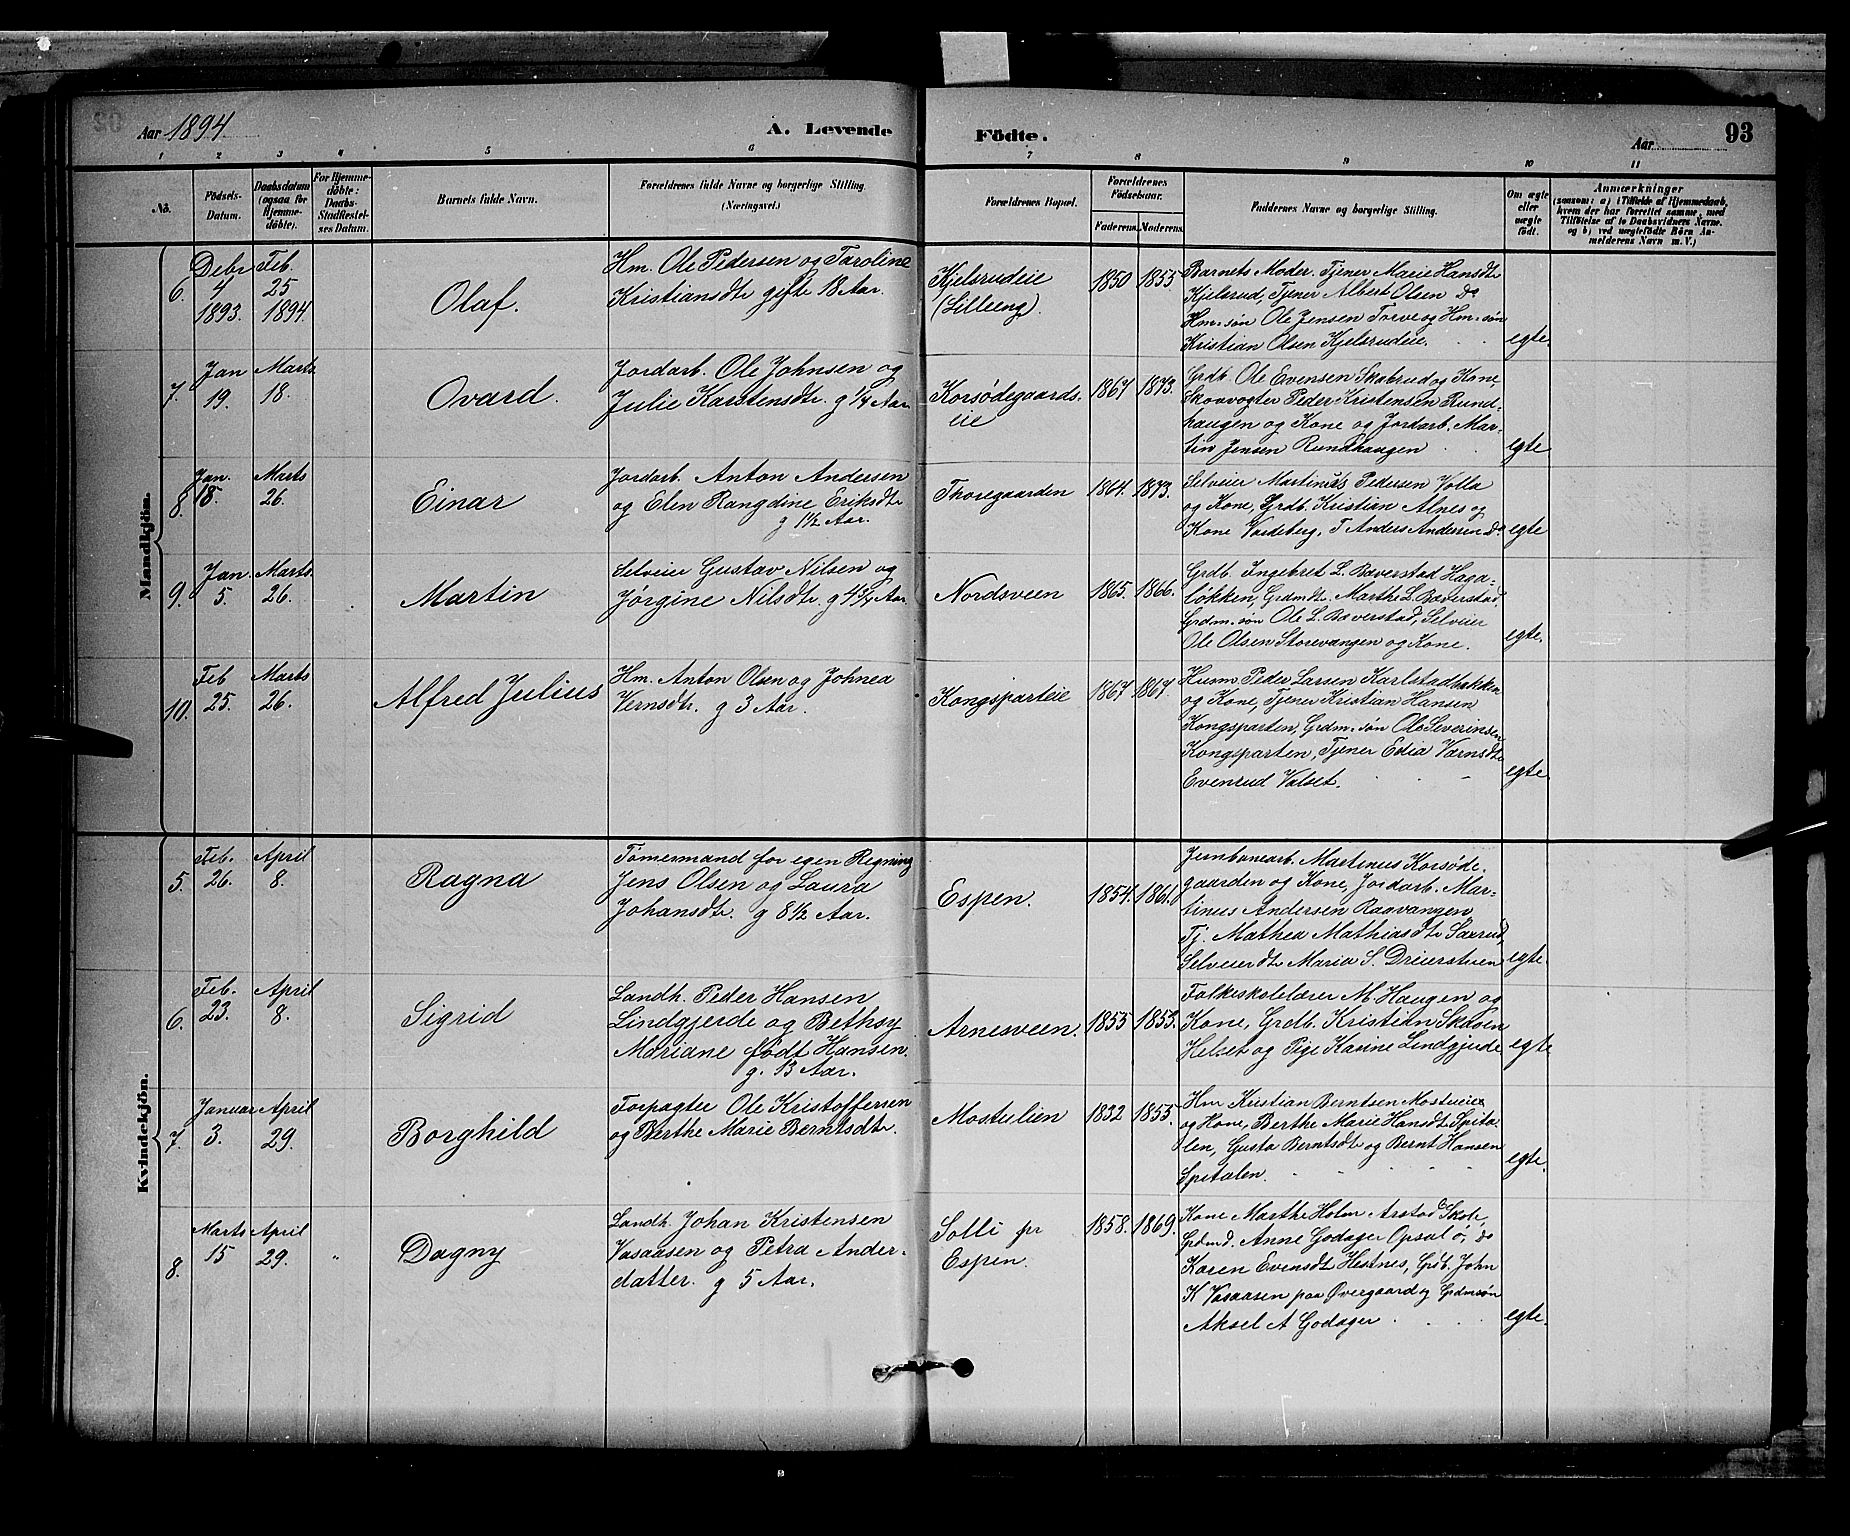 Aar 1894. A. Levende Födte. Aar 93
1 2 3 4 5 6 7 8 9 10 11
No. Födsels-Datum. Daabsdatum (ogsaa for Hjemme-döbte). For Hjemme-döbte: Daabs-Stadfæstel-ses Datum. Barnets fulde Navn. Forældrenes fulde Navne og borgerlige Stilling. (Næringsvei.) Forældrenes Bopæl. Forældrenes Födselsaar. Faderens. Moderens. Faddernes Navne og borgerlige Stilling. Om ægte eller uægte födt. Anmærkninger (saasom: a) i Tilfælde af Hjemmedaab, hvem der har forrettet samme, med Tilföielse af to Daabsvidners Navne, og b) ved uægtefödte Börn An-melderens Navn m. V.)
Mandkjön.
6. Debr 4 1893. Feb. 25 1894.
Olaf.
Hm. Ole Pedersen og Taroline
Kristiansdtr gifte 18 Aar.
Kjelsrudeie
(Lilleeng)
1850 1855
Barnets Moder, Tjener Marie Hansdtr
Kjelsrud, Tjener Albert Olsen do
Hm-søn Ole Jensen Torve og Hm-søn
Kristian Olsen Kjelsrudeie.
egte.
7. Jan 19. Marts 18.
Ovard.
Jordarb. Ole Johnsen og
Julie Karstensdtr. g 1/4 Aar
Korsødegaards-
eie
1867 1873.
Grdb. Ole Evensen Skabrud og Kone,
Skovvogter Peder Kristensen Rund-
haugen og Kone og Jordarb. Mar-
tin Jensen Rundhaugen
egte
8. Jan. 18. Marts 26.
Einar
Jordarb. Anton Andersen
og Elen Rangdine Eriksdtr
g 1½ Aar.
Thoregaarden
1864. 1873.
Selveier Martinus Pedersen Volla
og Kone, Grdb. Kristian Alnes og
Kone Vardeberg, T Anders Andersen do
egte
9. Jan. 5. Marts. 26.
Martin
Selveier Gustav Nilsen og
Jørgine Nilsdtr. g 4 3/4 Aar
Nordsveen
1865. 1866.
Grdb. Ingebret L. Baverstad Haga-
løkken, Grdmdt. Marthe L. Bæverstad,
Grdm-søn Ole L. Baverstad, Selveier
Ole Olsen Storevangen og Kone.
egte.
10. Feb 25. Marts 26.
Alfred Julius
Hm. Anton Olsen og Johnea
Vernsdtr. g 3 Aar.
Kongsparteie
1867 1867.
Husm. Peder Larsen Karlstadbakken
og Kone, Tjener Kristian Hansen
Kongsparten, Grdm-søn Ole Severinsen
Kongsparten, Tjener Edia Værnsdtr
Evenrud Valset.
egte.
Kvindekjön.
5. Feb. 26. April 8.
Ragna
Tømermand for egen Regning
Jens Olsen og Laura
Johansdtr. g 8½ Aar.
Espen.
1854. 1861.
Jernbanearb. Martinus Korsøde-
gaarden og Kone, Jordarb. Mar-
tinus Andersen Raavangen,
Tj. Mathea Mathiasdtr Saxrud,
Selveierdtr Maria S. Dreiersteen
egte.
6. Feb. 23. April 8.
Sigrid
Landh. Peder Hansen
Lindgjerde og Bethsy
Mariane født Hansen.
g. 13 Aar.
Arnesveen.
1855 1853.
Folkeskolelærer M. Haugen og
Kone, Grdb. Kristian Skaven
Helset og Pige Karine Lindgjerde
egte
7. Januar 3. April 29.
Borghild
Forpagter Ole Kristoffersen
og Berthe Marie Berntsdtr.
Mostulien
1832 1855.
Hm Kristian Berntsen Mostueie
og Kone, Berthe Marie Hansdt Spita-
len, Gusta Berntsdtr og Bernt Hansen
Spitalen.
egte.
8. Marts 15 April 29. "
Dagny
Landh. Johan Kristensen
Vasaasen og Petra Ander-
datter. g 5 Aar.
Solli pr
Espen.
1858. 1869.
Kone Marthe Holm Arstad Skole,
Grdmd. Anne Godager Opsal ø, do
Karen Evensdt Hestnes, Grdb. John
K Vasaasen paa Øvergaard og Grdmsøn
Aksel A Godager
egte.